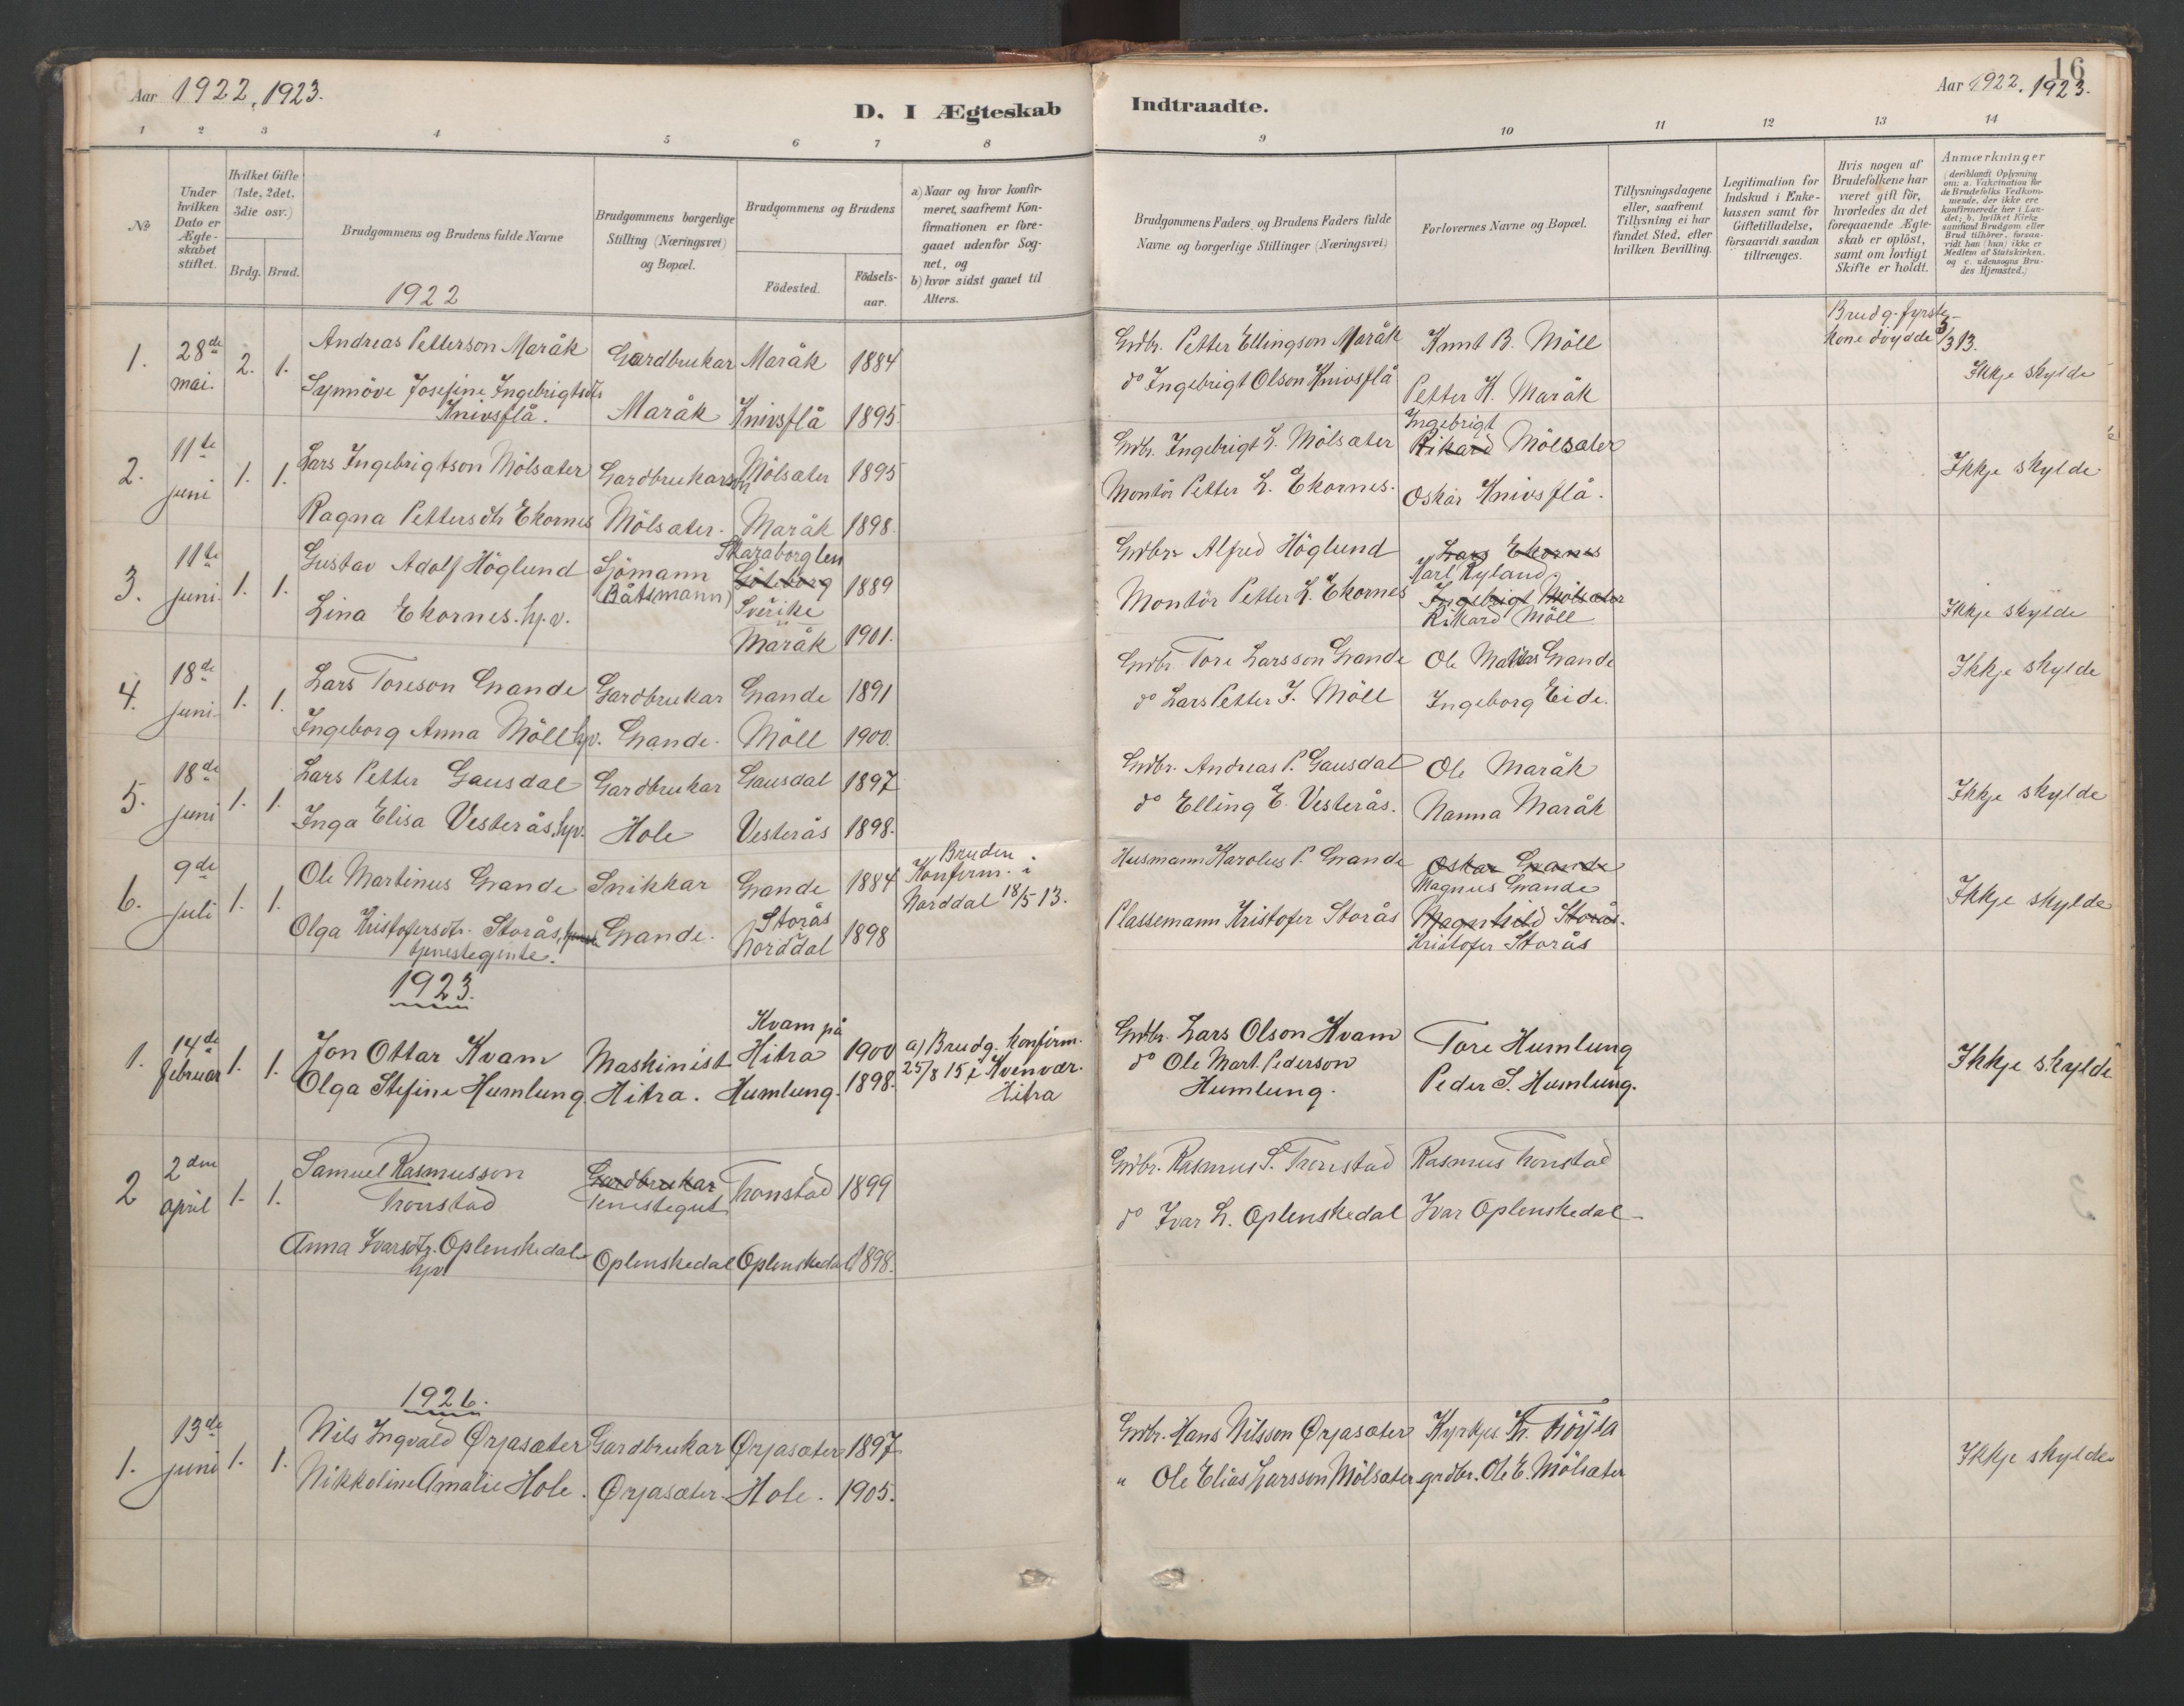 Aar 1922, 1923.
D. I Ægteskab
Indtraadte.
Aar 1922, 1923.
16
1 2 3 4 5 6 7 8
9 10 11 12 13 14
№
Under hvilken Dato er Ægteskabet stiftet.
Hvilket Gifte (1ste, 2det, 3die osv.)
Brdg. Brud.
Brudgommens og Brudens fulde Navne
Brudgommens borgerlige Stilling (Næringsvei) og Bopæl.
Brudgommens og Brudens
Födested.
Födsels-aar.
a) Naar og hvor konfirmeret, saafremt Konfirmationen er foregaaet udenfor Sognet, og
b) hvor sidst gaaet til Alters.
Brudgommens Faders og Brudens Faders fulde Navne og borgerlige Stillinger (Næringsvei)
Forlovernes Navne og Bopæl.
Tillysningsdagene eller, saafremt Tillysning ei har fundet Sted, efter hvilken Bevilling.
Legitimation for Indskud i Enkekassen samt for Giftetilladelse, forsaavidt saadan tiltrænges.
Hvis nogen af Brudefolkene har været gift för, hvorledes da det foregaaende Ægteskab er oplöst, samt om lovligt Skifte er holdt.
Anmærkninger
(deriblandt Oplysning om: a. Vakcination for de Brudefolks Vedkommende, der ikke ere konfirmerede her i Landet; b. hvilket Kirkesamfund Brudgom eller Brud tilhörer, forsaavidt han (hun) ikke er Medlem af Statskirken, og c. udensogns Brudes Hjemsted.)
1922
1. 28de mai. 2. 1.
Andreas Petterson Maråk Gardbrukar Maråk 1884
Synnöve Josefine Ingebrigtsdtr Knivsflå. Maråk Knivsflå 1895
Grdbr. Petter Ellingson Maråk Knut B. Möll
do Ingebrigt Olson Knivsflå Petter K. Maråk
Brudg. fyrste kone döydde 3/3 13.
Ikkje skylde
2. 11te juni 1. 1.
Lars Ingebrigtson Mölsæter Gardbrukarson Mölsæter 1895
Ragna Pettersdtr Ekornes Mölsæter. Maråk 1898.
Grdbr. Ingebrigt L. Mölsæter Ingebrigt Rikard Mölsæter
Montör Petter L. Ekornes. Oskar Knivsflå.
Ikkje skylde
3. 11te juni. 1. 1.
Gustav Adolf Höglund Sjömann (Båtsmann) Skaraborg len Göteborg Sverike 1889
Lina Ekornes. hp.v. Maråk 1901.
Grdbr. Alfred Höglund Lars Ekornes Karl Ryland
Montör Petter L. Ekornes Ingebrigt Mölsæter Rikard Möll
Ikkje skylde
4. 18de juni. 1. 1.
Lars Toreson Grande Gardbrukar Grande 1891
Ingeborg Anna Möll hp.v. Grande. Möll 1900.
Grdbr. Tore Larsson Grande Ole Mattias Grande
do Lars Petter J. Möll Ingeborg Eide.
Ikkje skylde
5. 18de juni 1. 1.
Lars Petter Gausdal Gardbrukar Gausdal 1897
Inga Elisa Vesterås, hpv. Hole Vesterås 1898.
Grdbr. Andreas P. Gausdal Ole Maråk
do Elling E. Vesterås. Nanna Maråk
Ikkje skylde
6. 9de juli 1. 1.
Ole Martinus Grande Snikkar Grande 1884
Bruden Konfirm. i Norddal 18/5 13.
Olga Kristofersdtr. Storås, tjenestegjente. Grande. Storås Norddal 1898
Husmann Karolus P. Grande Oskar Grande Magnus Grande
Plassemann Kristofer Storås Magnhild Storås. Kristofer Storås
Ikkje skylde
1923.
1. 14de februar 1. 1.
Jon Ottar Kvam Maskinist Kvam på Hitra 1900
a) Brudg. konfirm. 25/8 15 i Kvenvær. Hitra
Olga Stefine Humlung Hitra. Humlung. 1898.
Grdbr. Lars Olson Kvam Tore Humlung
do Ole Mart. Pederson Humlung. Peder S. Humlung.
Ikkje skylde
2 2den april 1. 1.
Samuel Rasmusson Tronstad Gardbrukar Tenestegut Tronstad 1899
Anna Ivarsdtr. Oplenskedal hpv Oplenskedal Oplenskedal 1898.
Grdbr. Rasmus S. Tronstad Rasmus Tronstad
do Ivar L. Oplenskedal Ivar Oplenskedal
1926.
1. 13de juni 1. 1.
Nils Ingvald Ørjasæter Gardbrukar Ørjasæter 1897
Nikkoline Amalie Hole. Ørjasæter Hole. 1905.
Grdbr. Hans Nilsson Ørjasæter Kyrkjes. Kr. Fröysa
" Ole Elias Larsson Mölsæter grdbr. Ole E. Mölsæter
Ikkje skylde